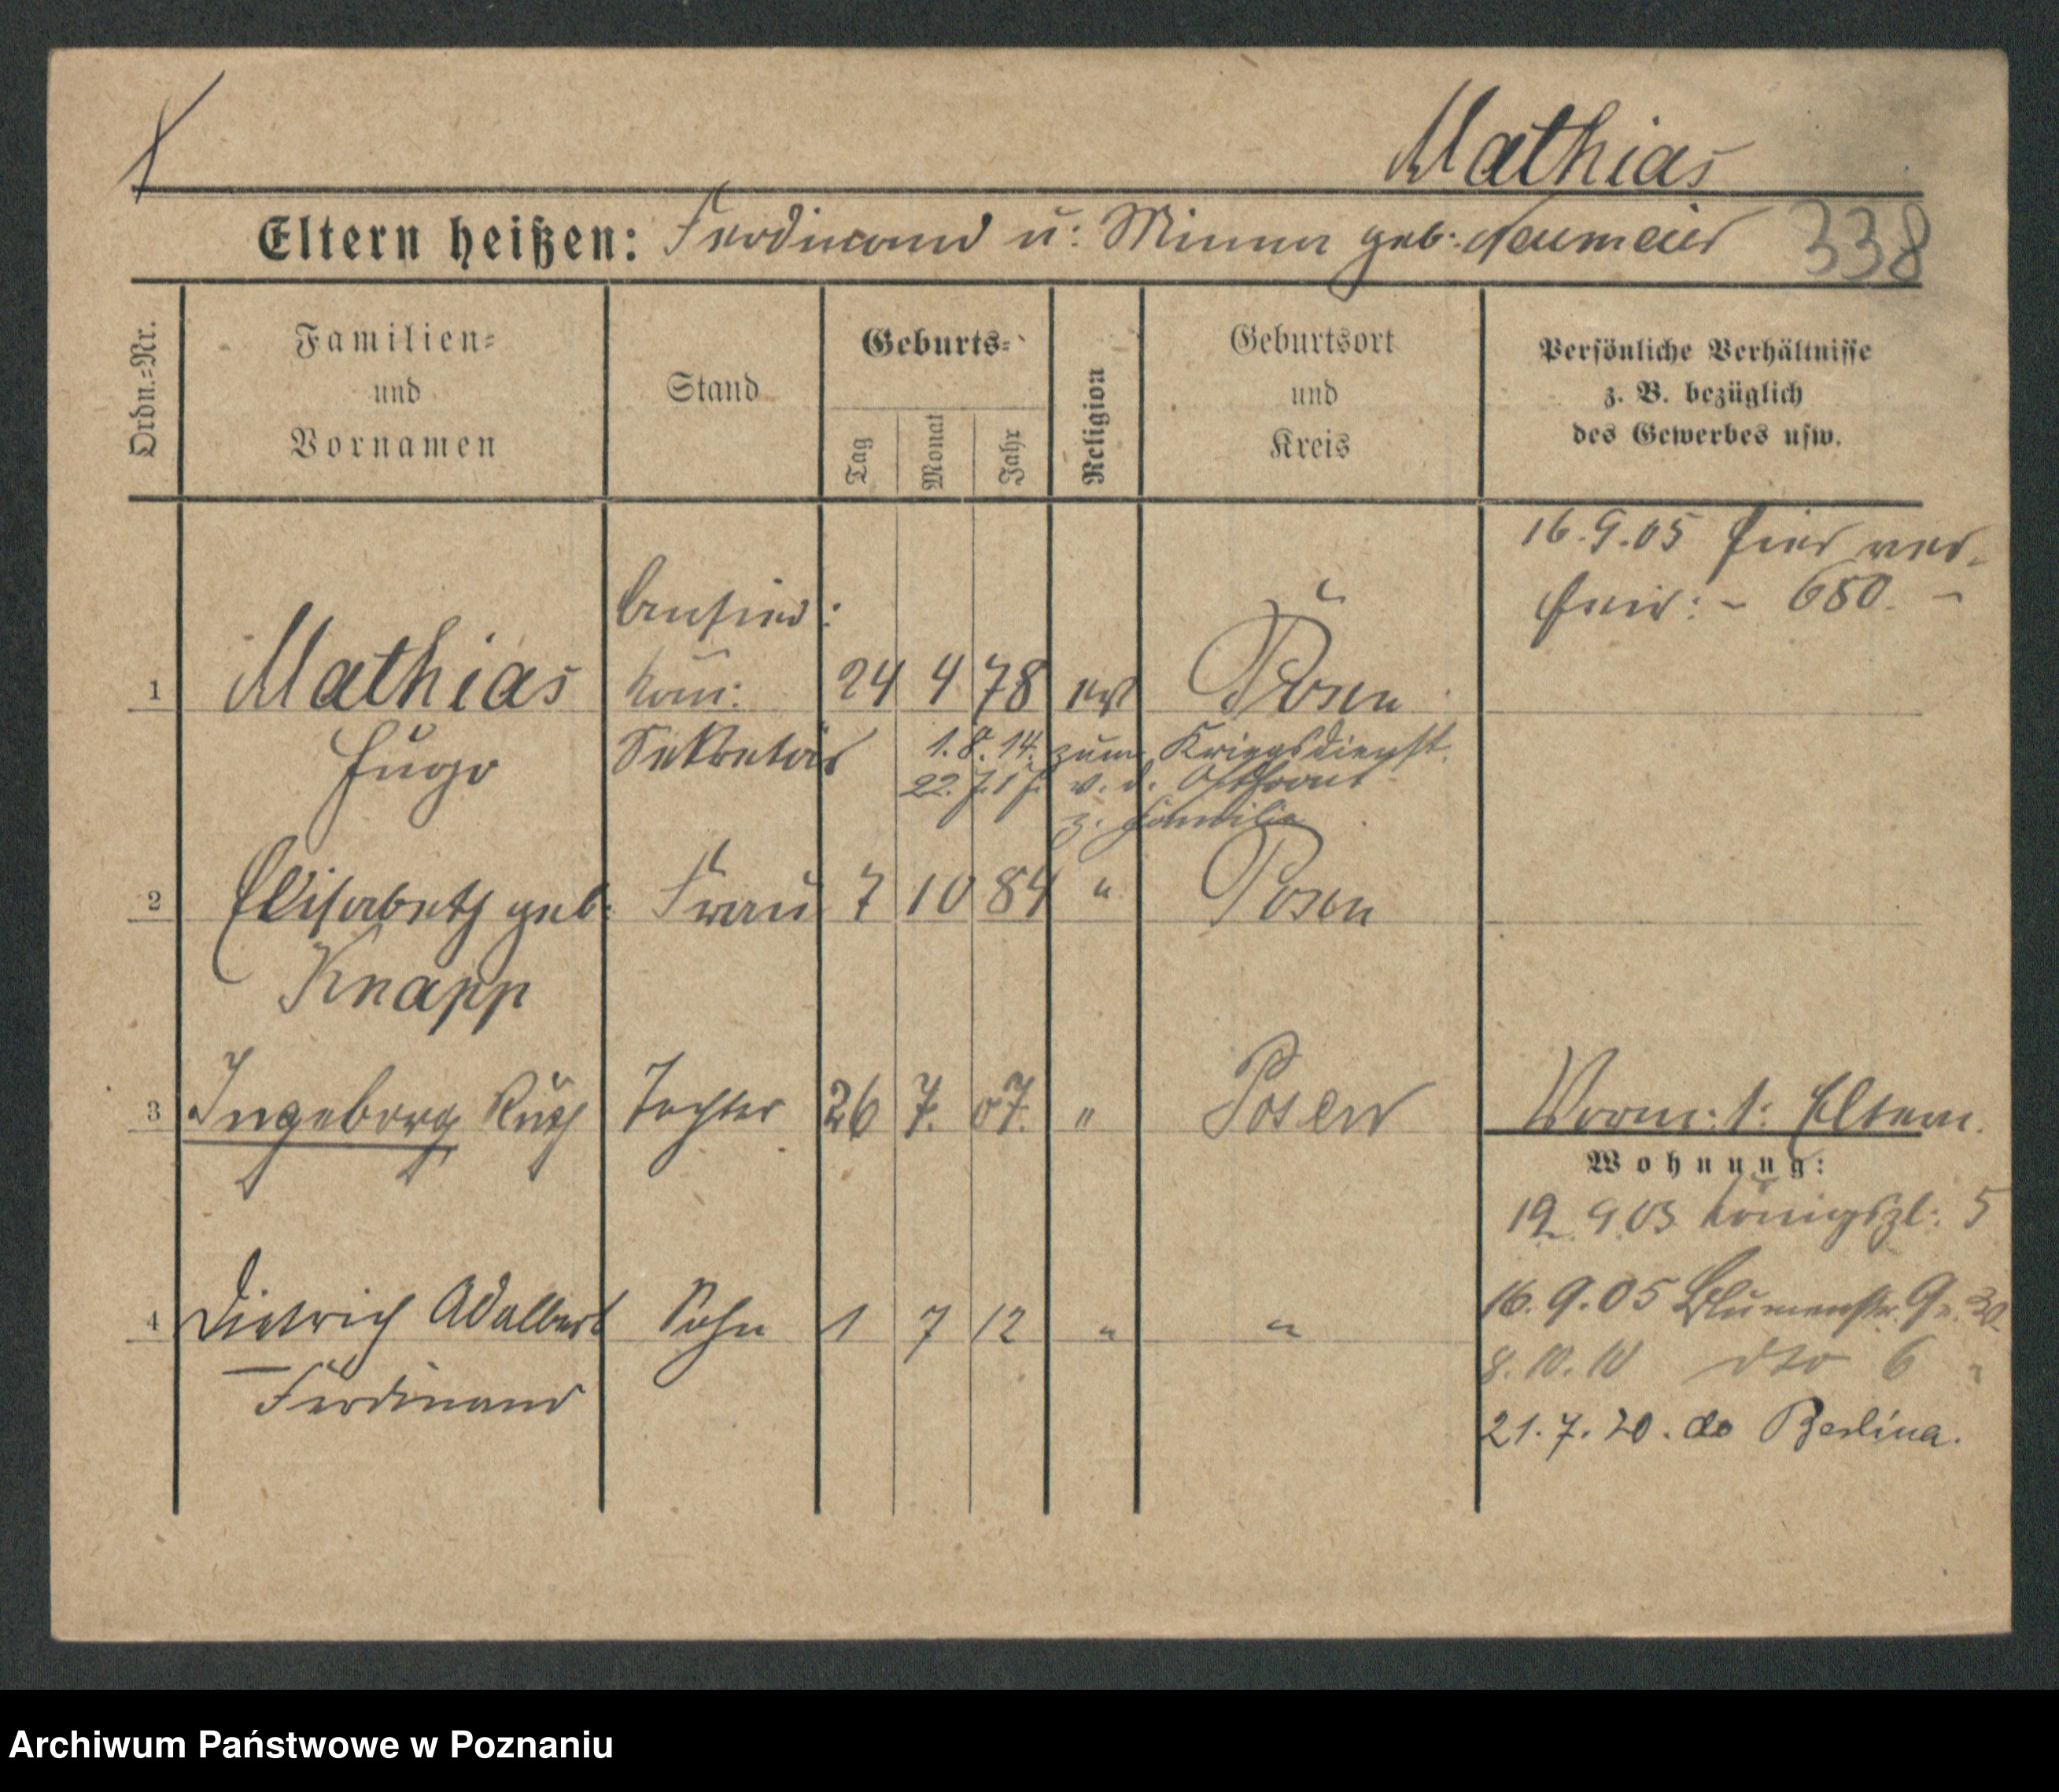 Mathias
Eltern heißen: Ferdinand u: Minna geb: Neumeier 338
Ordn.=Nr.
Familien=
und
Vornamen
Stand
Geburts=
Tag
Monat
Jahr
Religion
Geburtsort
und
Kreis
Persönliche Verhältnisse
z. B. bezüglich
des Gewerbes usw.
16.9.05 hier ver-
heir: - 680. -
1 Mathias
Hugo
kom:
Sekretär
24 4 78 ev Posen
1.8.14. zum Kriegsdienst.
22.7.17. v. d. Ostfront
z. Familie
2 Elisabeth geb: Frau 7 10 84 " Posen
Knapp
3 Ingeborg Ruth Tochter 26 7. 07. " Posen Vorm: 1: Eltern.
Wohnung:
19 9 03 Königspl: 5
4 Dietrich Adalbert Sohn 1 7 12 " "
Ferdinand
16.9.05 Blumenstr. 9
8.10.10 dto 6 "
21.7.20. do Berlina.
Archiwum Państwowe w Poznaniu